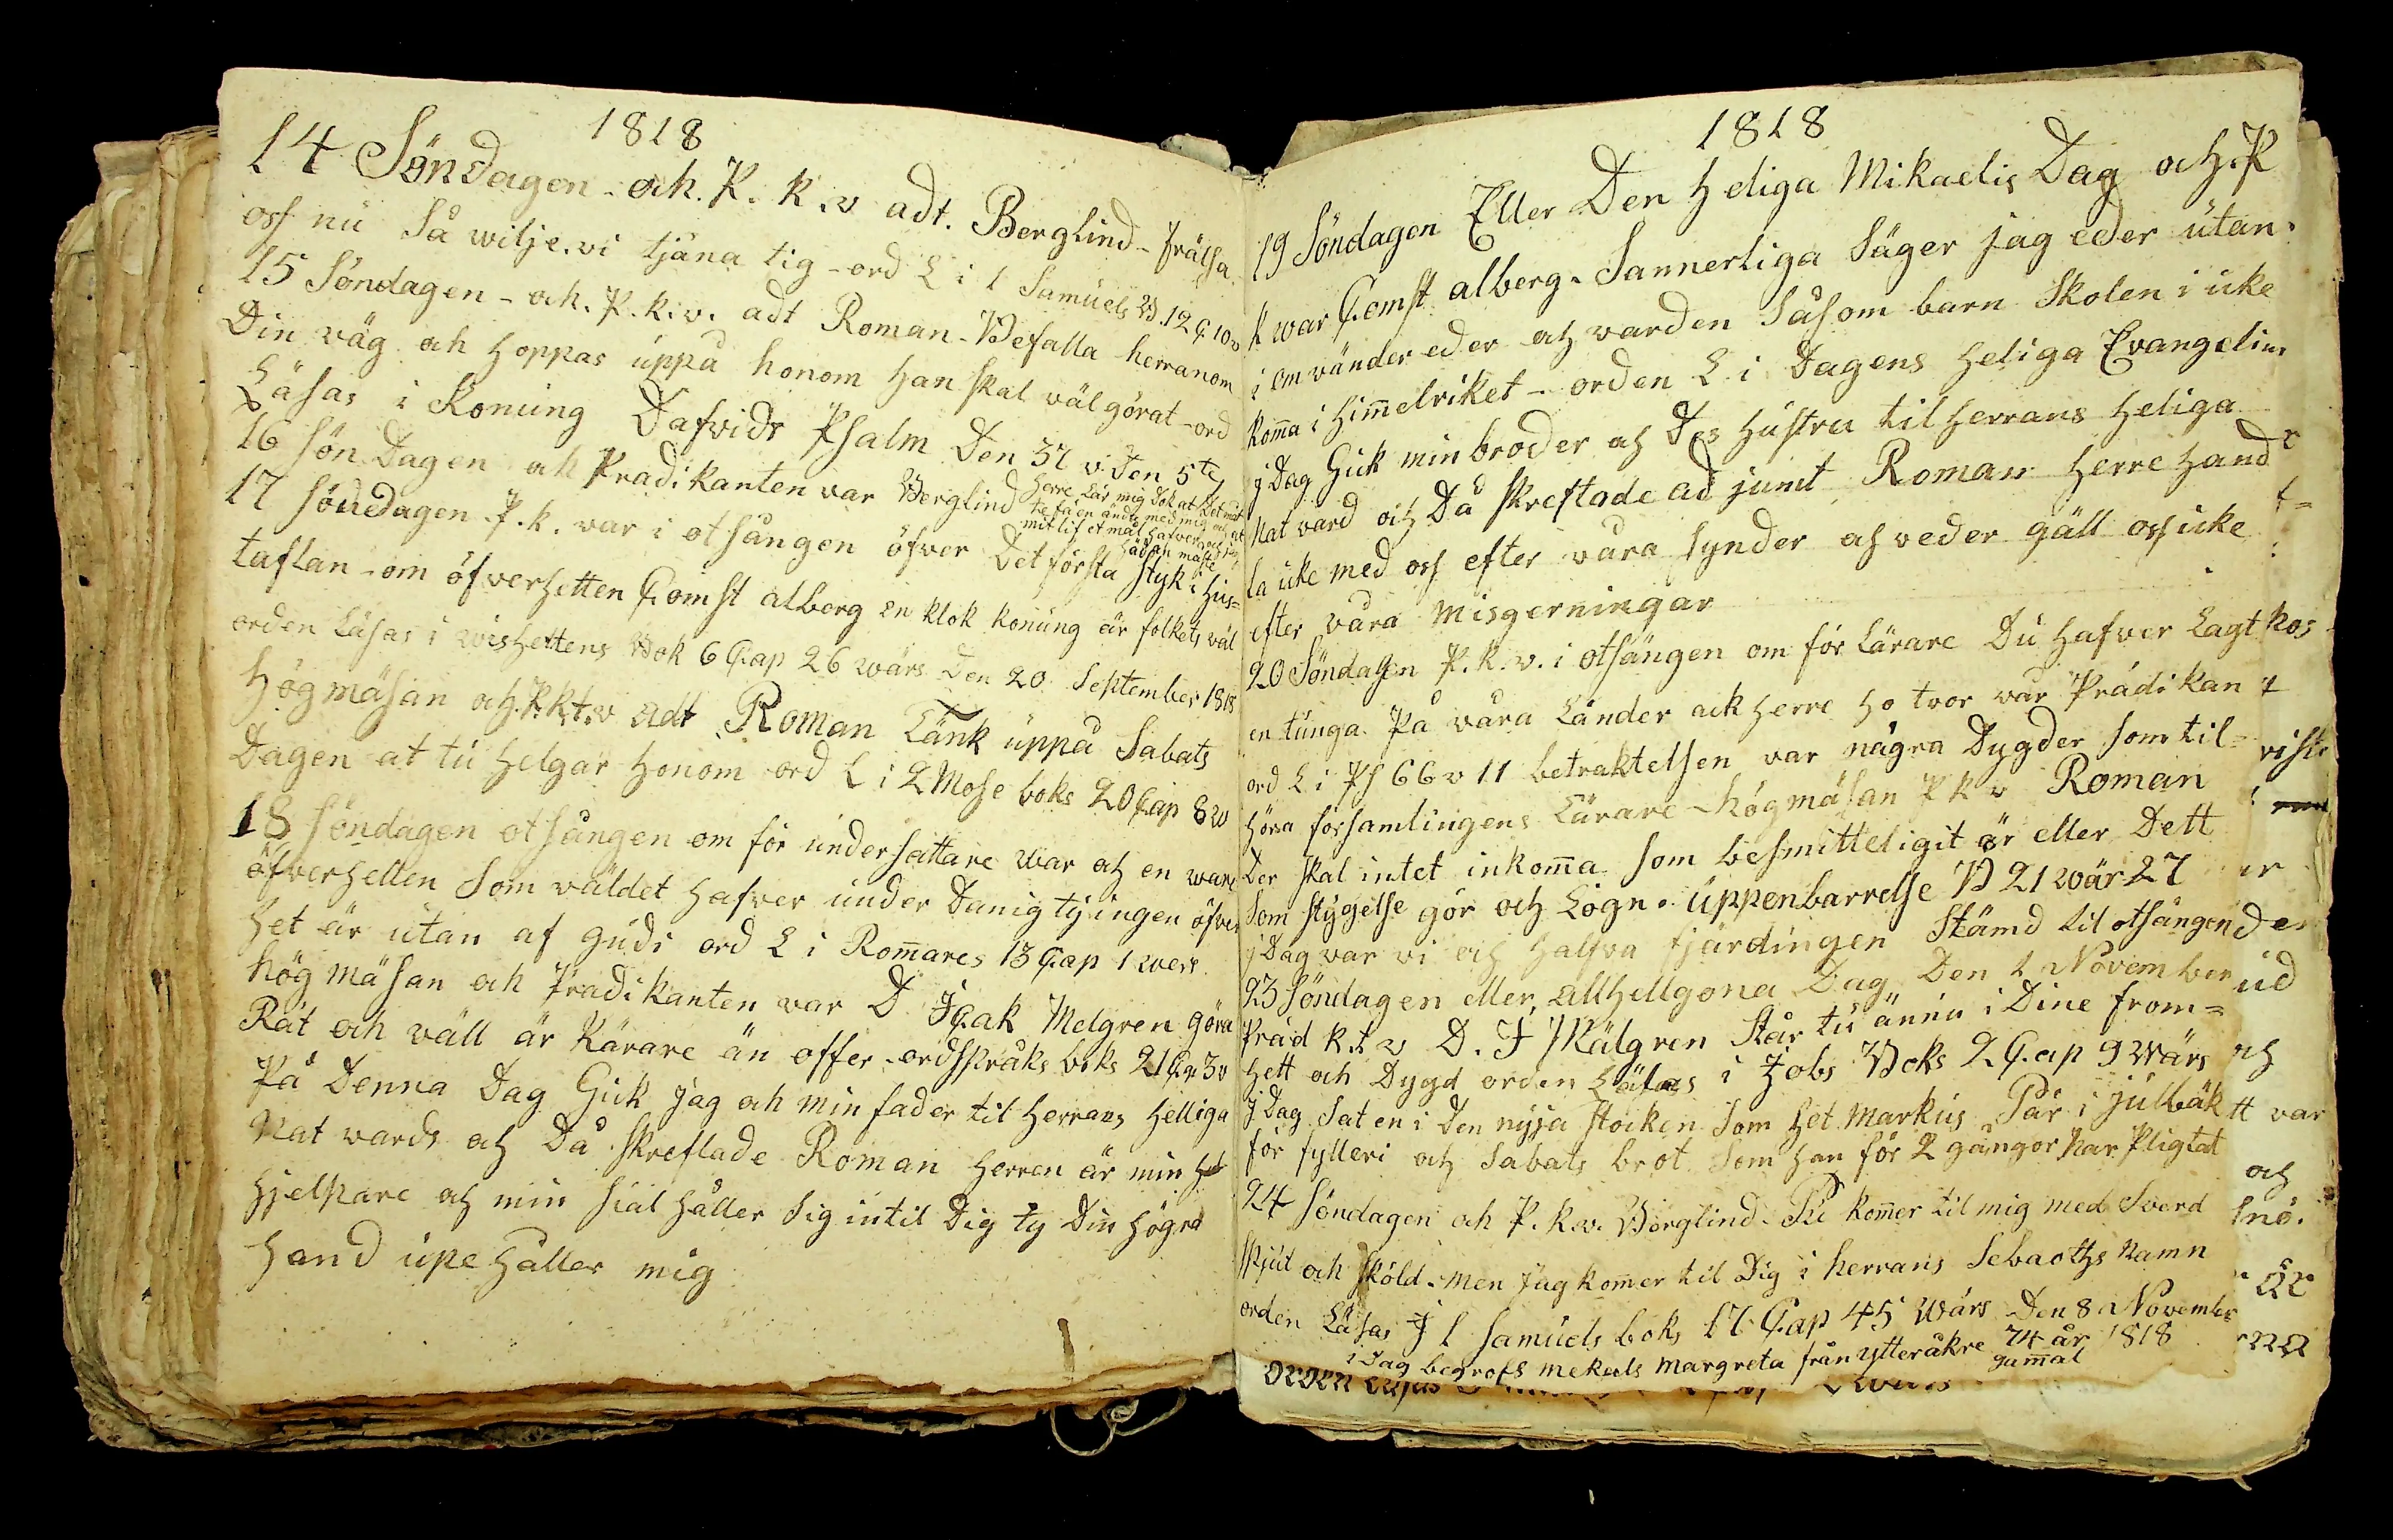 1818
14 Söndagen - ock. P. k. v adt. Berglind - frälsa
oss nu Så wilje. vi tjäna tig - ord L i 1 Samuels B. 12 C 10 v
15 Söndagen - och. P. k. v. adt Roman - Befalla herranom
Din väg och hoppas uppå honom han skal väl görat - ord
Läsas i Konung Dafvids Psalm Den 37 v. Den 5te
16 sön Dagen och Pradikanten var Berglind Herre Lär mig Dok at Det måste
te få en ände med mig och at
mit lif et mål hafver och jag
hädan måste
17 söndagen. P. k. var i otsången öfver Det första styk i hus=
taflan - om öfverhetten Comst alberg en klok konung är folkets väl
orden Läsas i wishettens Bok 6 Cap 26 wärs Den 20 September 1818
Högmäsan och. P.kt.v adt Roman Tänk uppå Sabats
Dagen at tu helgar honom ord L i 2 Mose boks 20 Cap 8 v
18 söndagen otsången om för undersåttare war och en ware
öfverhetten Som väldet hafver under Danig ty ingen öfver
het är utan af gudi ord L i Romares 13 Cap 1 wers
högmäsan och Pradikanten var D Jcak Melgren göra
Rät och väll är Kärare än offer - ordspråks boks 21 Ca 3 v
På Denna Dag Gick jag och min fader til Herrans Helliga
Nat vards och Då skreftade Roman Herren är min
hjelpare och min siäl håller Sig intil Dig ty Din högra
hand upe håller mig
1818
19 Söndagen Eller Den heliga Mikaelis Dag och. P
k war Comst alberg. Sannerliga Säger jag eder utan.
i omvänder eder och warden Såsom barn Skolen i icke
koma i himelriket - orden L i Dagens heliga Evangelium
j Dag Gick min broder och Des hustru til herrans heliga
Natvard och Då skreftade adjunt Roman Herre Hand
la icke med oss efter våra synder och veder gäll oss icke
efter våra misgerningar
20 Söndagen P. k. v. i otsången om för Lärare Du hafver Lagt
en tunga På våra Länder ack herre ho tror vår Prädikan
ord L i Ps 66 v 11 betraktelsen var några Dygder som til=
höra församlingens Lärare - högmäsan P k v Roman
Der skal intet inkoma som besmitteligit är eller Dett
Som stygelse gör och Lögn. uppenbarrelse B 21 wär 27
j Dag var vi och halfva fjärdingen Stämd til otsången
23 Söndagen eller allhellgona Dag Den 1 November
Präd k.t v D. J Mälgren Står tu ännu i Dine from=
hett och Dygd orden Läsas i Jobs Boks 2 Cap 9 Wärs
j Dag Sat en i Den nyja stocken Som het Markus Pär i julbäk
för fylleri och Sabats brot Som han för 2 gångor har Pligtat
24 Söndagen och P. k. v. Berglind - Tu komer til mig med Sverd
spjut och sköld - men jag komer til Dig i herrans Sebaoths Namn
orden Läsas J 1 Samuels boks 17 Cap 45 Wärs Den 8 November
1818
i Dag begrofs mekaels Margreta från ytteråkre 74 år
gamal
kos
der
ud
och
tt var
och
snö.
är